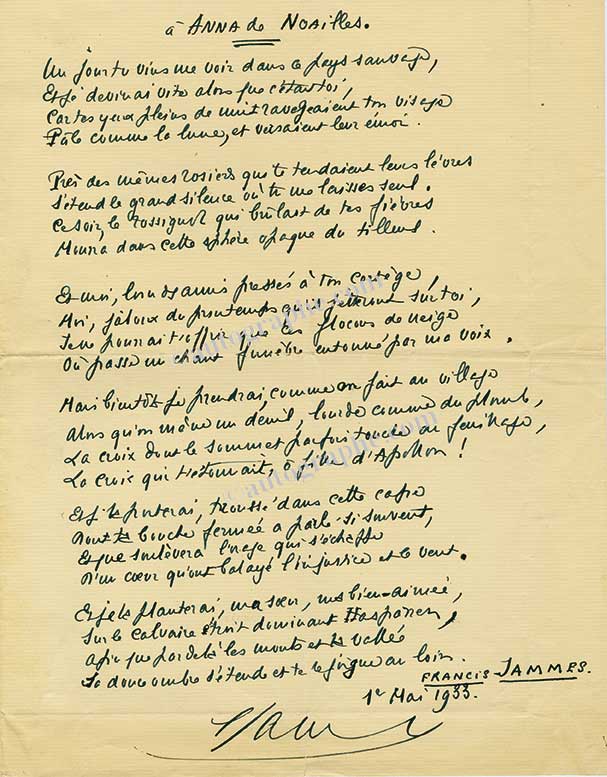 à ANNA de NOAILLES.
Un jour tu vins me voir dans ce pays sauvage,
Et je devinai vite alors que c'était toi,
Car tes yeux pleins de nuit ravageaient ton visage
Pâle comme la lune, et versaient leur émoi.
Près des mêmes rosiers que te tendaient leurs lèvres
S'étend le grand silence où tu me laisses seul.
Ce soir, le rossignol qui brûlait de tes fièvres
Mourra dans cette sphère opaque du tilleul.
Et moi, loin des amis pressés à ton cortège,
Moi, jaloux du printemps qu'ils jetteront sur toi,
Je ne pourrai t'offrir que les flocons de neige
Où passe un chant funèbre entonné par ma voix.
Mais bientôt je prendrai, comme on fait au village
Alors qu'on mène un deuil, lourde comme du plomb,
La croix dont le sommet parfois touche au feuillage,
La croix qui t'étonnait, ô fille d'Apollon!
Et je la porterai, troussé dans cette cape
Dont la bouche fermée a parlé si souvent,
Et que soulèvera l'orage qui s'échappe
D'un cœur qu'ont balayé l'injustice et le vent.
Et je la planterai, ma sœur, ma bien-aimée,
Sur le calvaire étroit dominant Hasparren,
Afin que par delà les monts et la vallée
Sa douce ombre s'étende et te rejoigne au loin.
FRANCIS JAMMES.
1er Mai 1933.
©autographe.com
©autographe.com